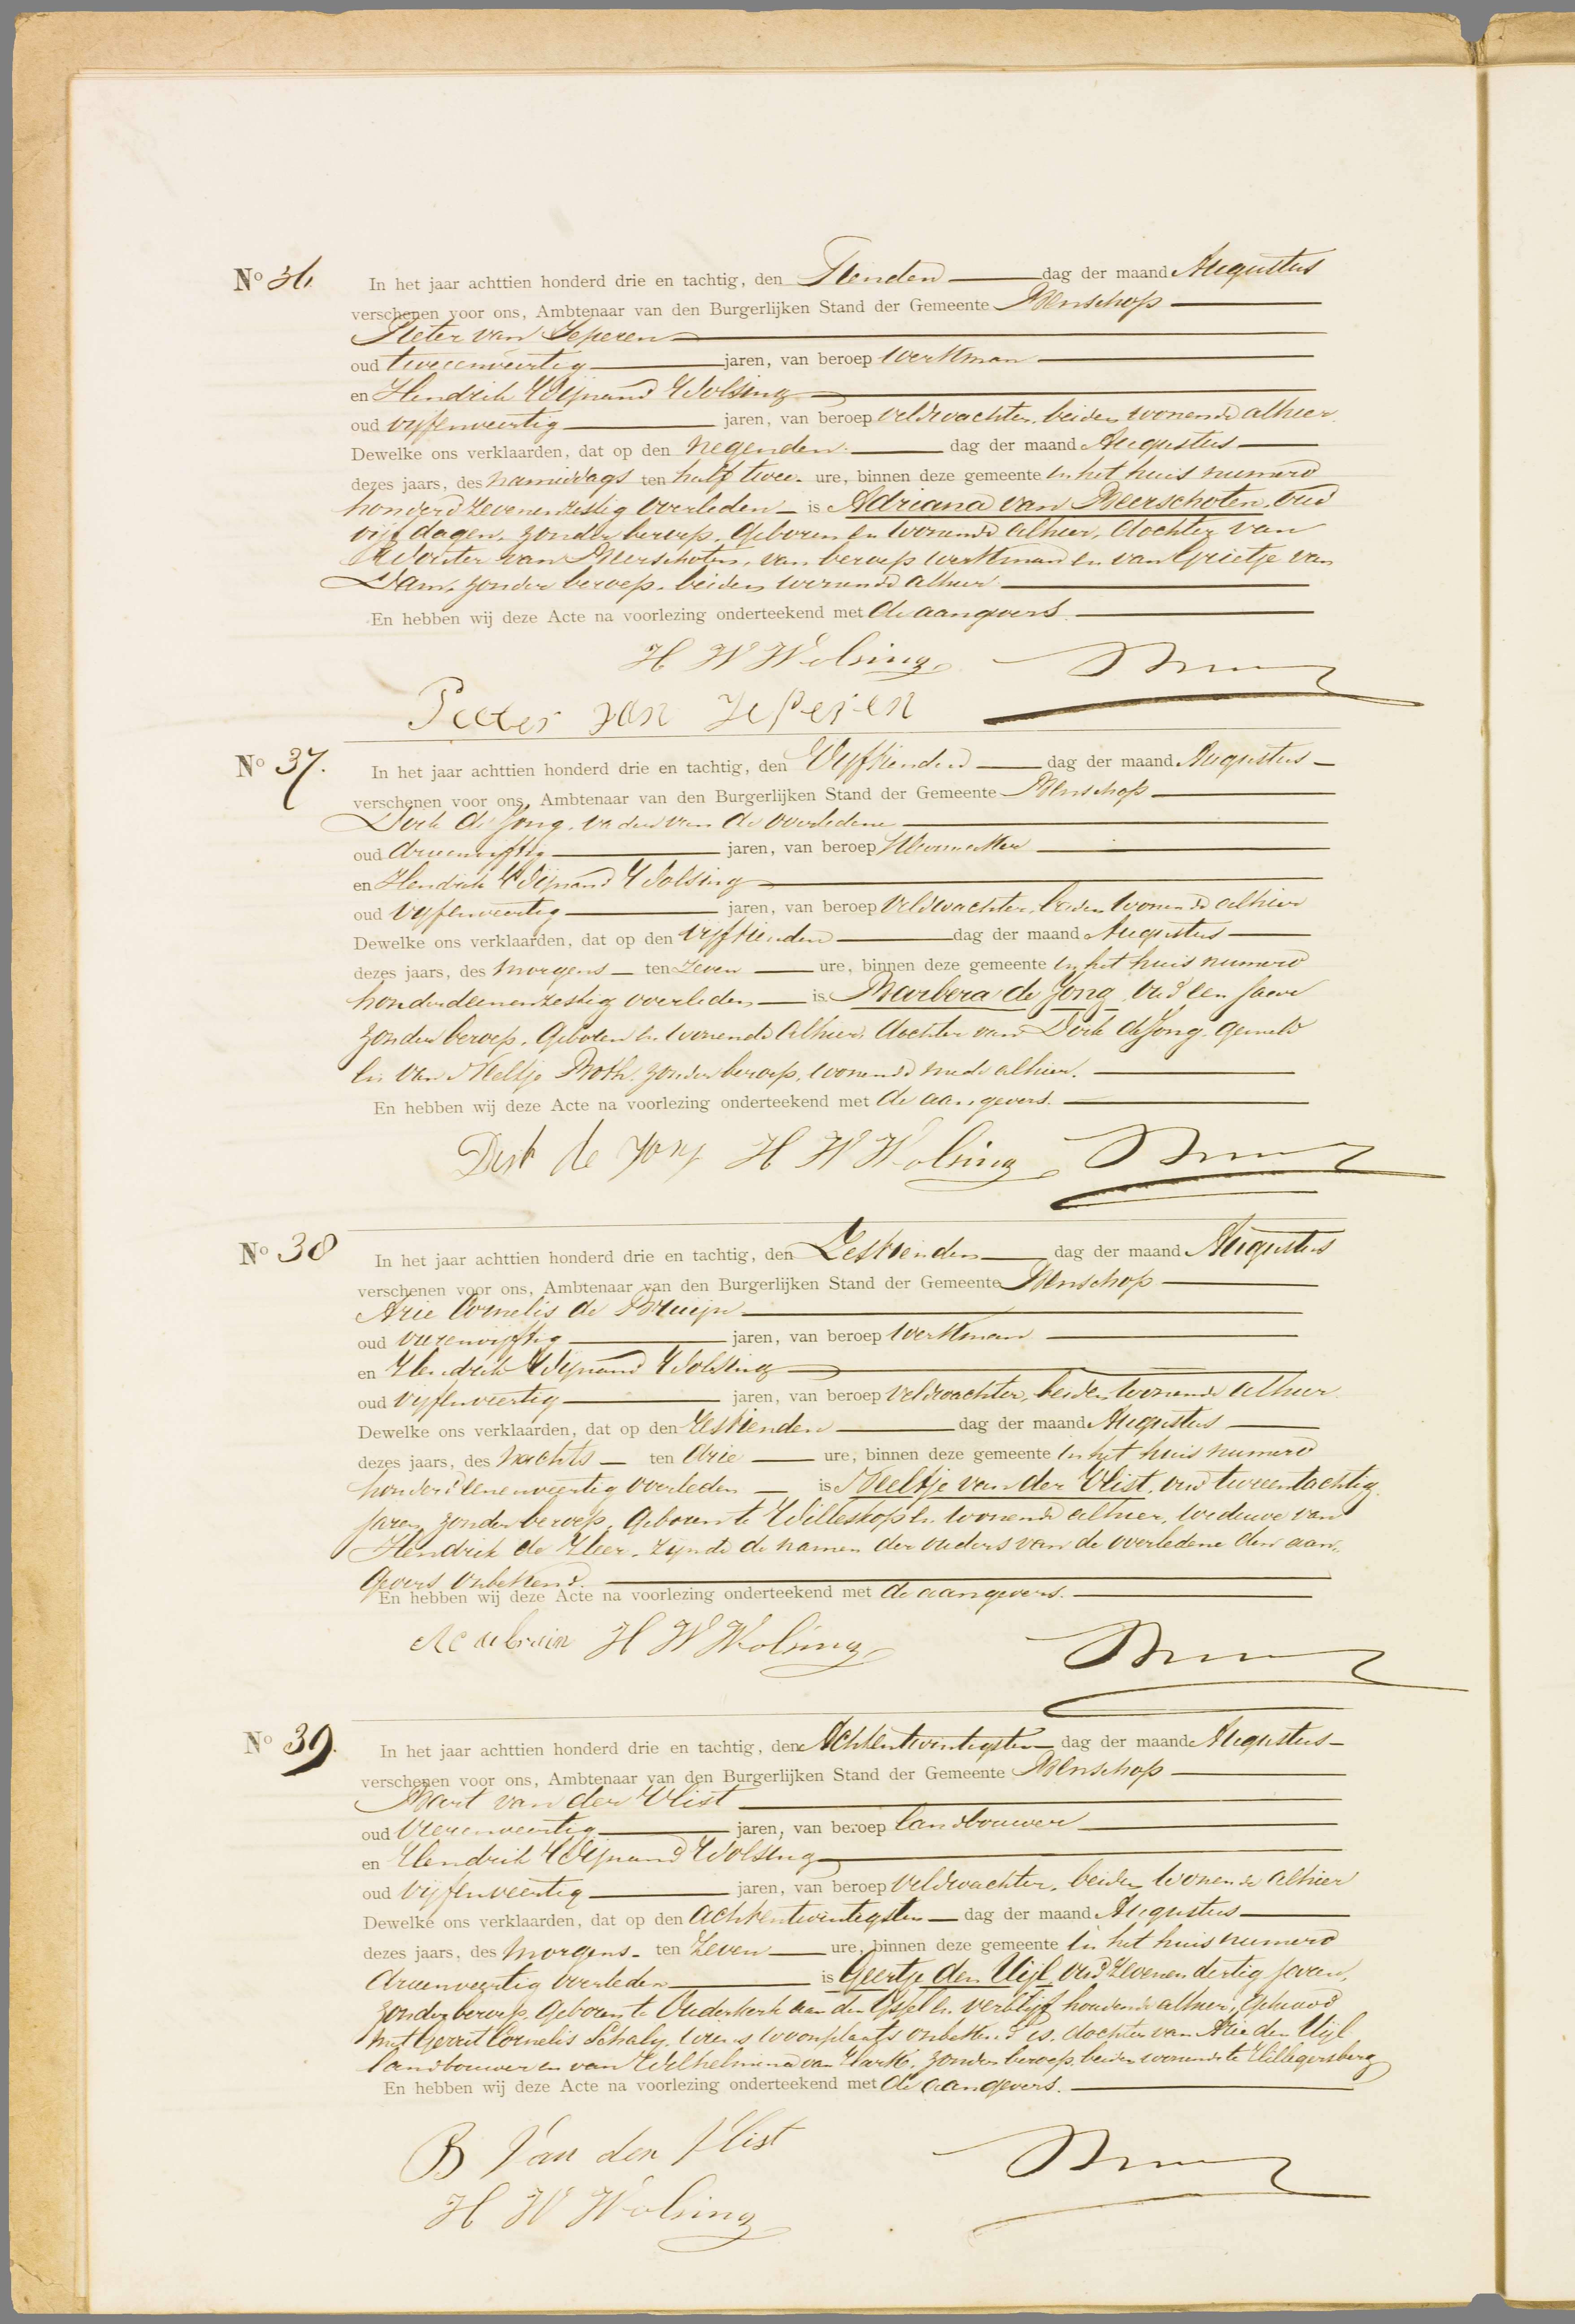 No 36. In het jaar achttien honderd drie en tachtig, den Tienden dag der maand Augustus
verschenen voor ons, Ambtenaar van den Burgerlijken Stand der Gemeente Benschop
Pieter van Ieperen
oud tweeenveertig jaren, van beroep werkman
en Hendrik Wijnand Wolsing
oud vijfenveertig jaren, van beroep veldwachter, beiden wonende alhier.
Dewelke ons verklaarden, dat op den negenden dag der maand Augustus
dezes jaars, des namiddags ten half twee ure, binnen deze gemeente in het huis numero
honderd zevenenzestig overleden is Adriana van Meerschoten, oud
vijf dagen, zonder beroep, geboren en wonende alhier, dochter van
Wouter van Meerschoten, van beroep werkman en van Grietje van
Dam, zonder beroep, beiden wonende alhier
En hebben wij deze Acte na voorlezing onderteekend met de aangevers.
H W Wolsing
Pieter van Ieperen
No 37. In het jaar achttien honderd drie en tachtig, den Vijftienden dag der maand Augustus
verschenen voor ons, Ambtenaar van den Burgerlijken Stand der Gemeente Benschop
Dirk de Jong, vader van de overledene
oud drieenvijftig jaren, van beroep
en Hendrik Wijnand Wolsing
oud vijfenveertig jaren, van beroep veldwachter, beiden wonende alhier
Dewelke ons verklaarden, dat op den vijftienden dag der maand Augustus
dezes jaars, des morgens ten zeven ure, binnen deze gemeente in het huis numero
honderdeenenzestig overleden is Barbera de Jong, oud een jaar
zonder beroep, geboren en wonende alhier, dochter van Dirk de Jong, gemeld
en van Neeltje Both, zonder beroep, wonende mede alhier.
En hebben wij deze Acte na voorlezing onderteekend met de aangevers.
Dirk de Jong H W Wolsing
No 38 In het jaar achttien honderd drie en tachtig, den Zestienden dag der maand Augustus
verschenen voor ons, Ambtenaar van den Burgerlijken Stand der Gemeente Benschop
Arie Cornelis de Bruijn
oud vierenvijftig jaren, van beroep werkman
en Hendrik Wijnand Wolsing
oud vijfenveertig jaren, van beroep veldwachter, beiden wonende alhier.
Dewelke ons verklaarden, dat op den zestienden dag der maand Augustus
dezes jaars, des nachts ten drie ure, binnen deze gemeente in het huis numero
honderd eenenveertig overleden is Neeltje van der Vlist, oud tweeentachtig
jaren, zonder beroep, geboren te Willeskop en wonende alhier, weduwe van
Hendrik de Heer, zijnde de namen der ouders van de overledene den aan-
gevers onbekend.
En hebben wij deze Acte na voorlezing onderteekend met de aangevers.
AC de bruin H W Wolsing
No 39. In het jaar achttien honderd drie en tachtig, den Achtentwintigsten dag der maand Augustus
verschenen voor ons, Ambtenaar van den Burgerlijken Stand der Gemeente Benschop
Bart van der Vlist
oud vierenveertig jaren, van beroep landbouwer
en Hendrik Wijnand Wolsing
oud vijfenveertig jaren, van beroep veldwachter, beiden wonende alhier
Dewelke ons verklaarden, dat op den achtentwintigsten dag der maand Augustus
dezes jaars, des morgens ten zeven ure, binnen deze gemeente in het huis numero
drieenveertig overleden is Geertje den Uijl, oud zevenendertig jaren,
zonder beroep, geboren te Ouderkerk aan den IJssel en verblijf houdende alhier, gehuwd
met Gerrit Cornelis Schaly, wiens woonplaats onbekend is, dochter van Arie den Uijl
landbouwer en van Wilhelmina van Harte, zonder beroep, beiden wonende te Hillegersberg
En hebben wij deze Acte na voorlezing onderteekend met de aangevers.
B Van der Vlist
H W Wolsing